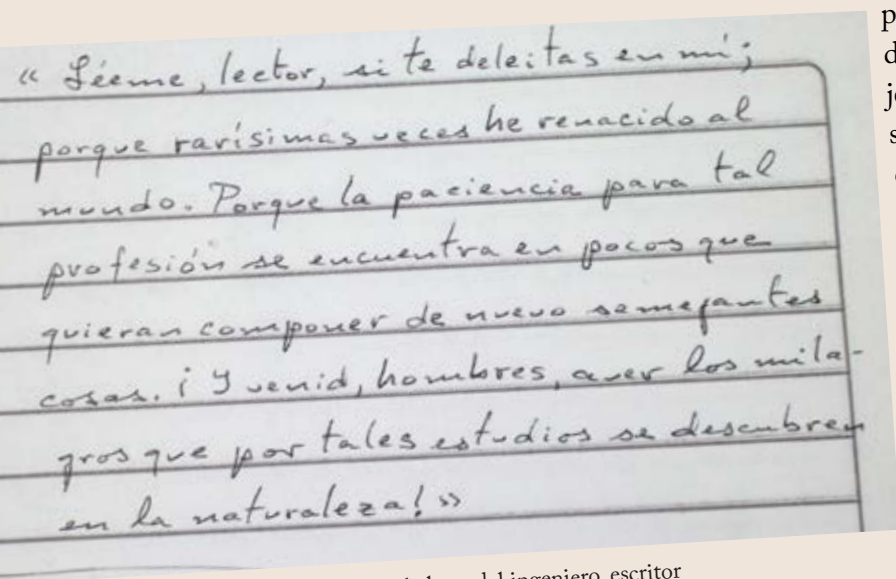 « Léeme, lector, si te deleitas en mí;
porque rarísimas veces he renacido al
mundo. Porque la paciencia para tal
profesión se encuentra en pocos que
quieran componer de nuevo semejantes
cosas. ¡Y venid, hombres, a ver los mila-
gros que por tales estudios se descubren
en la naturaleza! »
del ingeniero, escritor
p
d
s